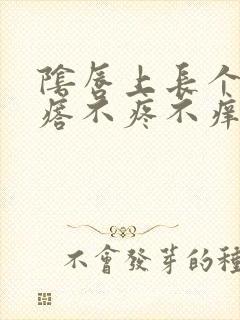 陰唇上長个
痞不疼不痒
不會發芽的種